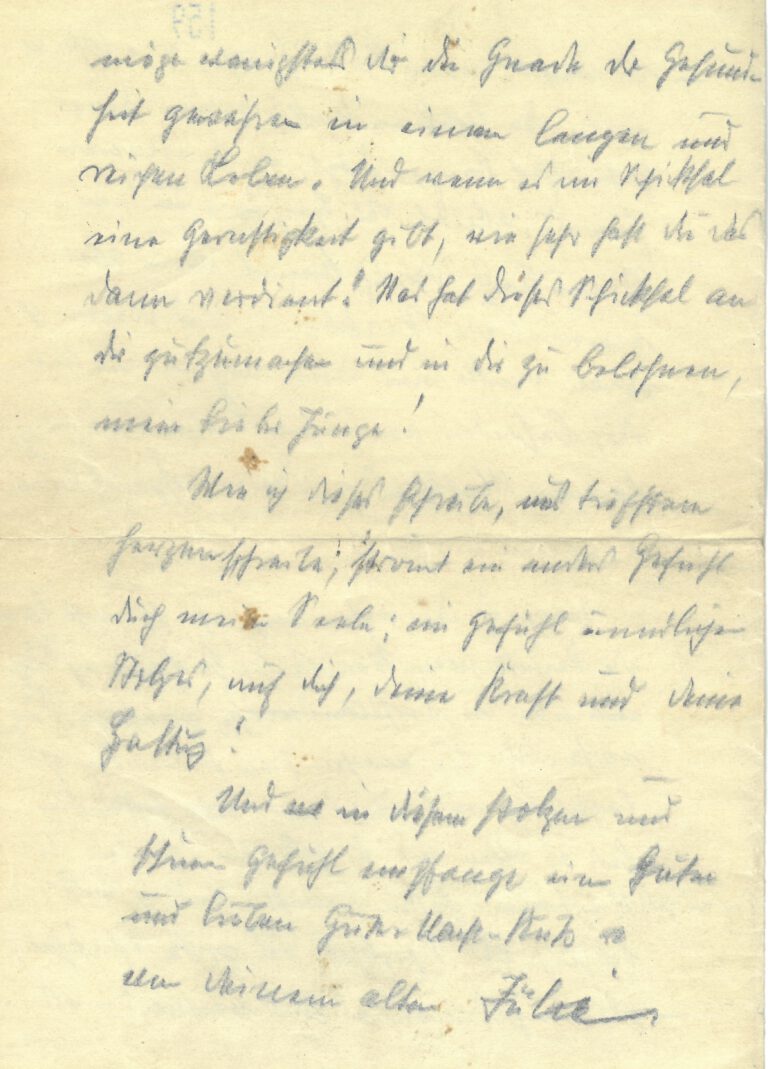 möge wenigstens dir die Gnade der Gesund-
heit gewähren in einem langen und
reichen Leben. Und wenn es im Schicksal
eine Gerechtigkeit gibt, wie sehr hast du das
dann verdient! Was hat dieses Schicksal an
dir gutzumachen und in dir zu belohnen,
mein lieber Junge!
Wie ich dieses schreibe, aus tiefstem
Herzen schreibe, strömt ein anderes Gefühl
durch meine Seele; ein Gefühl unendlichen
Stolzes, auf dich, deine Kraft und deine
Haltung!
Und in diesem stolzen und
Gefühl empfange einen guten
und lieben Gute-Nacht-Kuß
von deinem alten